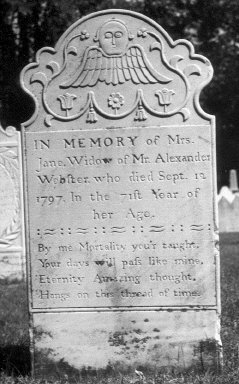 IN MEMORY of Mrs.
Jane, Widow of Mr. Alexander
Webster, who died Sept. 12
1797. In the 71st Year of
her Age.
By me Mortality you'r taught,
Your days will pass like mine,
Eternity Amazing thought,
Hangs on this thread of time.